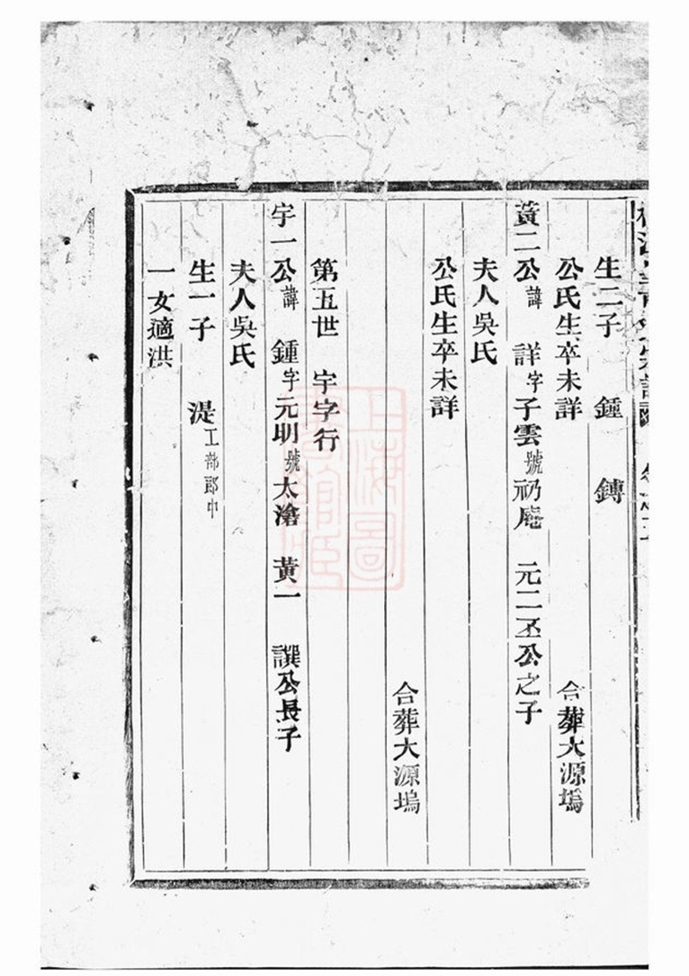 生二子 鍾 鏄
公氏生卒未詳 合葬大源塢
黃二公諱 詳字子雲號礽庵 元二丕公之子
夫人吳氏
公氏生卒未詳
合葬大源塢
第五世 宇字行
宇一公諱 鍾字元明號太滄 黃一 譔公長子
夫人吳氏
生一子 湜工部郎中
一女適洪